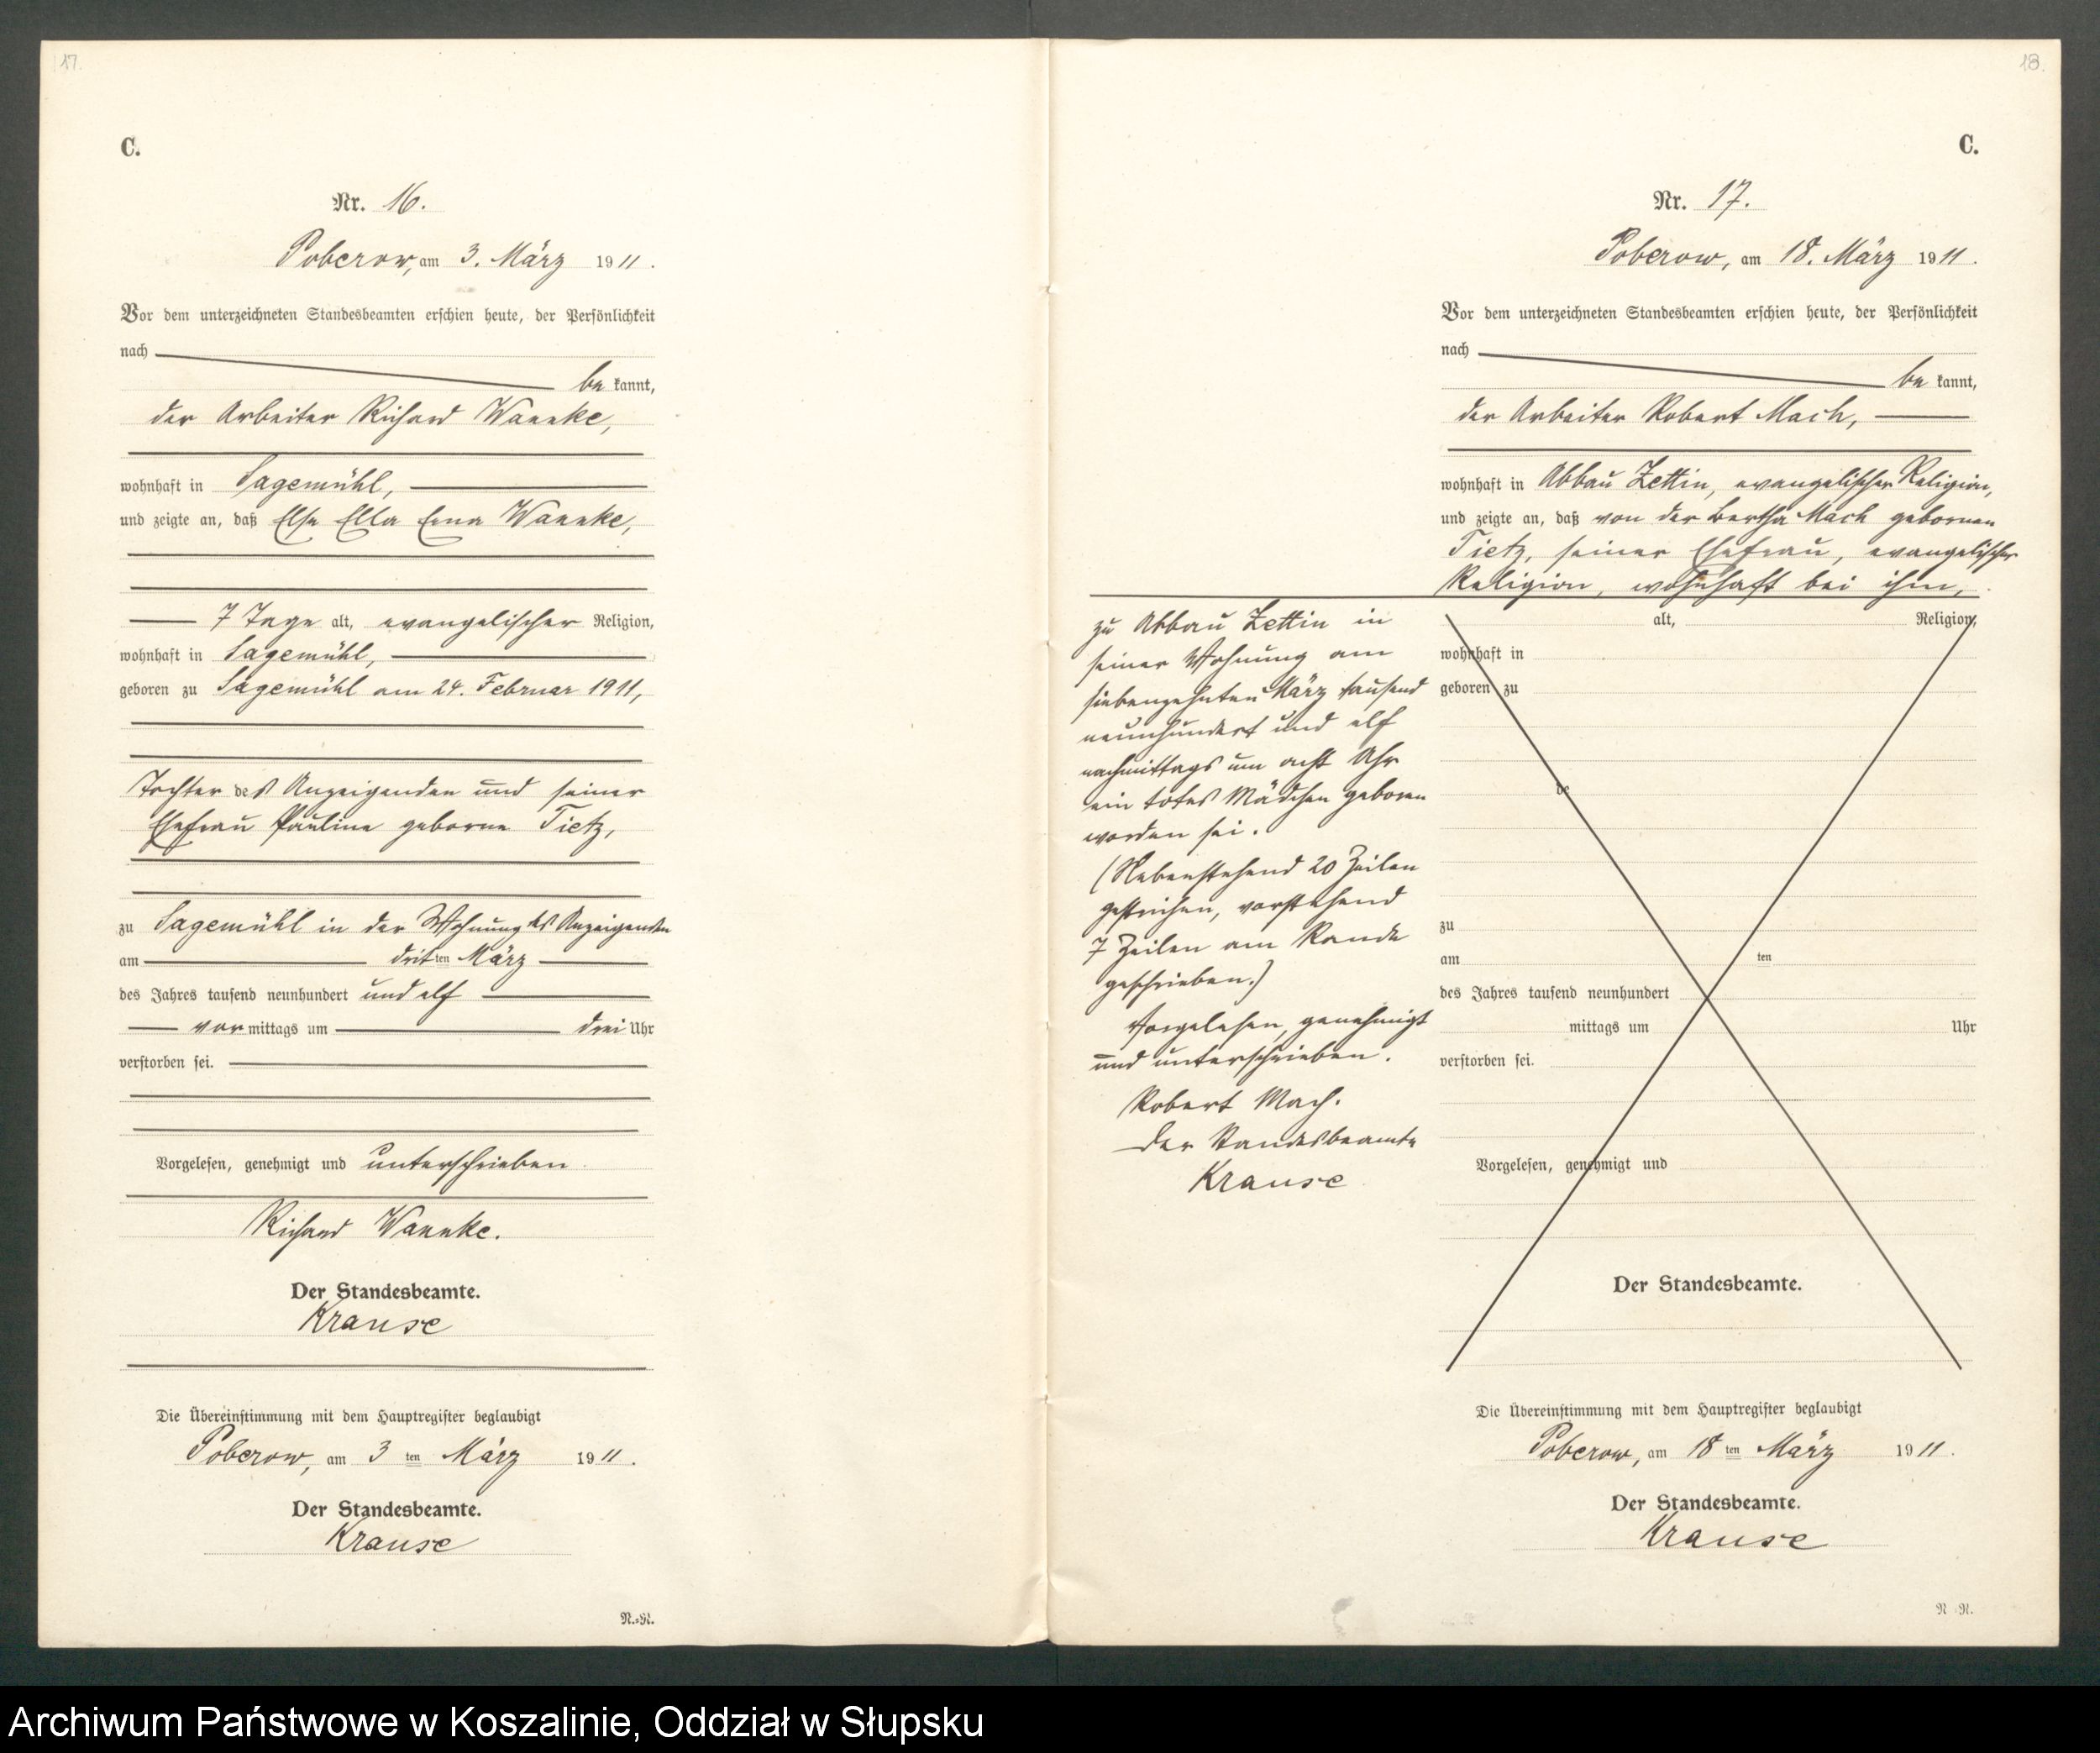 17.
C.
Nr. 16.
Poberow, am 3. März 1911.
Vor dem unterzeichneten Standesbeamten erschien heute, der Persönlichkeit
nach
be kannt,
der Arbeiter Richard Wannke,
wohnhaft in Sagemühl,
und zeigte an, daß Else Ella Erna Wannke,
7 Tage alt, evangelischer Religion,
wohnhaft in Sagemühl,
geboren zu Sagemühl am 24. Februar 1911,
Tochter des Anzeigenden und seiner
Ehefrau Pauline geborne Tietz,
zu Sagemühl in der Wohnung des Anzeigenden
am dritten März
des Jahres tausend neunhundert und elf
vormittags um drei Uhr
verstorben sei.
Vorgelesen, genehmigt und unterschrieben
Richard Wannke.
Der Standesbeamte.
Krause
Die Übereinstimmung mit dem Hauptregister beglaubigt
Poberow, am 3 ten März 1911.
Der Standesbeamte.
Krause
N.=R.
18.
C.
Nr. 17.
Poberow, am 18. März 1911.
Vor dem unterzeichneten Standesbeamten erschien heute, der Persönlichkeit
nach
be kannt,
der Arbeiter Robert Mach,
wohnhaft in Abbau Zettin, evangelischer Religion,
und zeigte an, daß von der Bertha Mach gebornen
Tietz, seiner Ehefrau, evangelischer
Religion, wohnhaft bei ihm,
zu Abbau Zettin in
seiner Wohnung am
siebenzehnten März tausend
neunhundert und elf
nachmittags um acht Uhr
ein totes Mädchen geboren
worden sei.
(Nebenstehend 20 Zeilen
gestrichen, vorstehend
7 Zeilen am Rande
geschrieben.)
Vorgelesen, genehmigt
und unterschrieben.
Robert Mach.
Der Standesbeamte
Krause
alt, Religion,
wohnhaft in
geboren zu
de
zu
am ten
des Jahres tausend neunhundert
mittags um Uhr
verstorben sei.
Vorgelesen, genehmigt und
Der Standesbeamte.
Die Übereinstimmung mit dem Hauptregister beglaubigt
Poberow, am 18 ten März 1911.
Der Standesbeamte.
Krause
N R.
Archiwum Państwowe w Koszalinie, Oddział w Słupsku